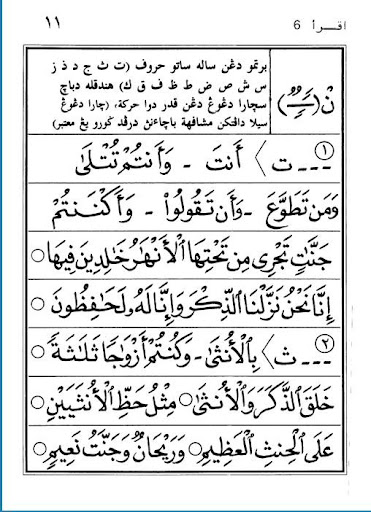 اقرأ 6
١١
نْ (ـًـٍـٌ)
برتمو دڠن ساله ساتو حروف (ت ث ج د ذ ز
س ش ص ض ط ظ ف ق ك) هندقله دباچ
سچارا دڠوڠ دڠن قدر دوا حركة، (چارا دڠوڠ
سيلا دالتكن مشافهة باچاءن درڤد ڬورو يڠ معتبر)
١ --- ت ⟩ أَنتَ - وَأَنتُمْ تُتْلَىٰ
وَمَن تَطَوَّعَ - وَأَن تَقُولُوا۟ - وَأَكْنَنتُمْ
جَنَّٰتٍ تَجْرِى مِن تَحْتِهَا ٱلْأَنْهَٰرُ خَٰلِدِينَ فِيهَا ○
إِنَّا نَحْنُ نَزَّلْنَا ٱلذِّكْرَ وَإِنَّا لَهُۥ لَحَٰفِظُونَ ○
٢ --- ث ⟩ بِٱلْأُنثَىٰ - وَكُنتُمْ أَزْوَٰجًا ثَلَٰثَةً
خَلَقَ ٱلذَّكَرَ وَٱلْأُنثَىٰ ○ مِثْلُ حَظِّ ٱلْأُنثَيَيْنِ ○
عَلَى ٱلْحِنثِ ٱلْعَظِيمِ ○ وَرَيْحَانٌ وَجَنَّتُ نَعِيمٍ ○